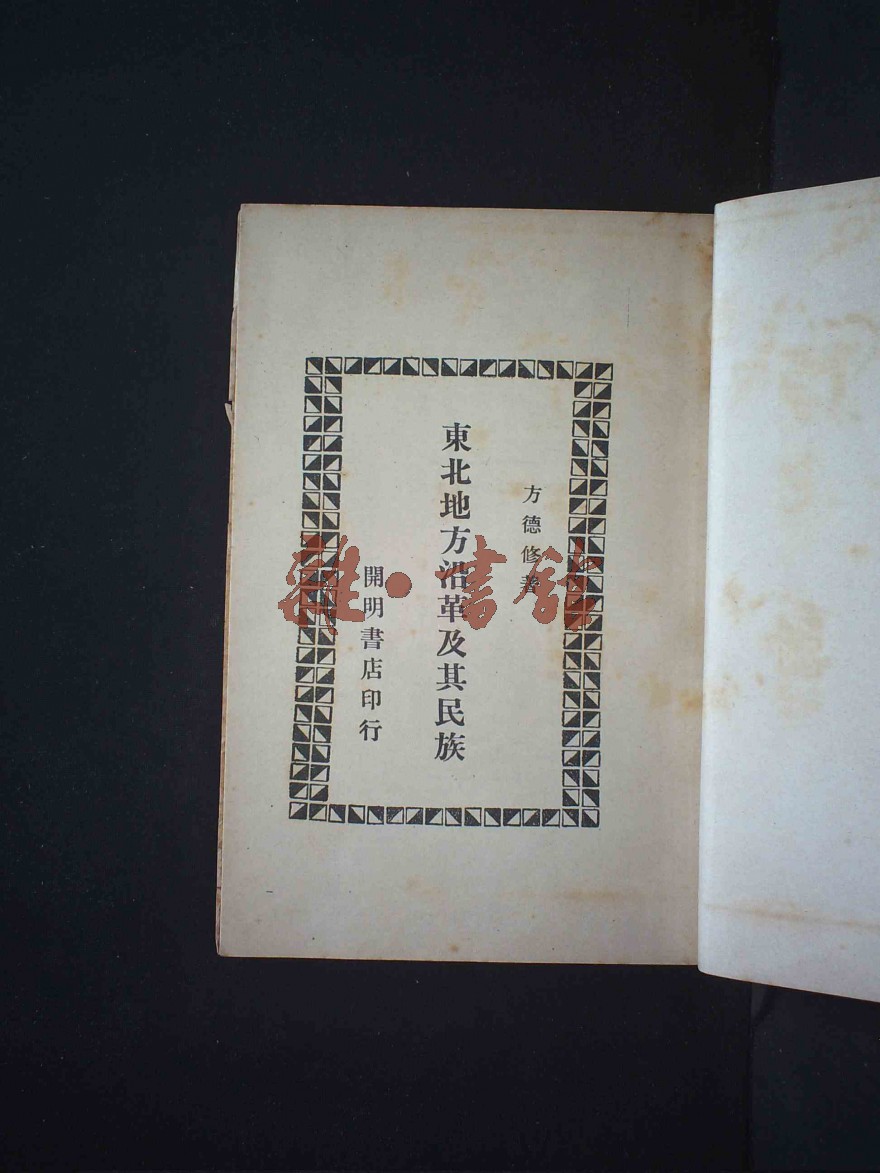 方德修著
東北地方沿革及其民族
開明書店印行
雜·書館